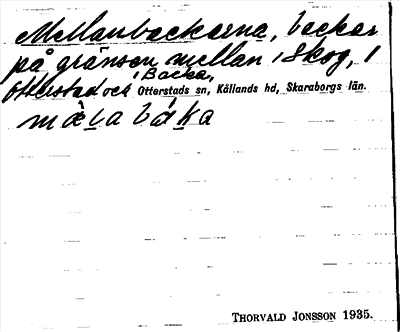 Mellanbackarna, backar
på gränsen mellan 1 Skog, 1
Otterstad och 1 Backa, Otterstads sn, Kållands hd, Skaraborgs län.
THORVALD JONSSON 1935.